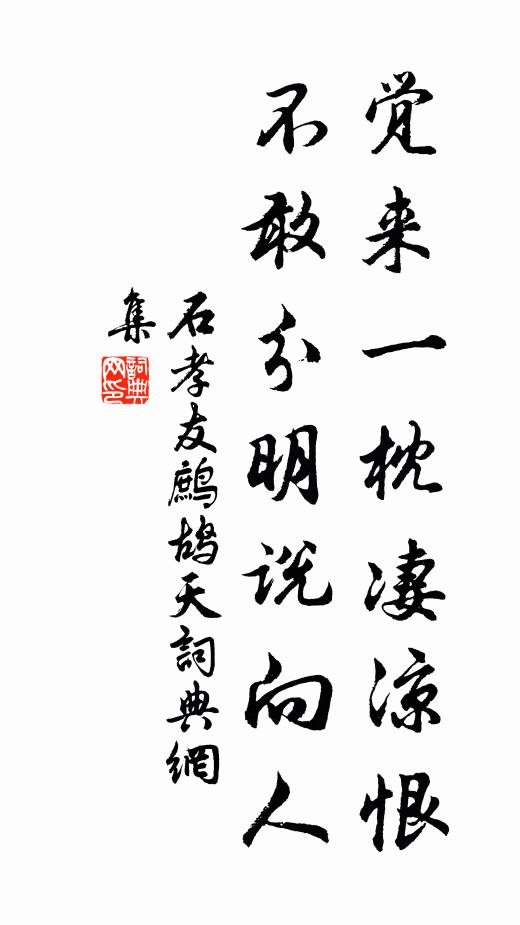 觉来一枕凄凉恨
不敢分明说向人
石孝友鹧鸪天詞典網
集
詞典
网印